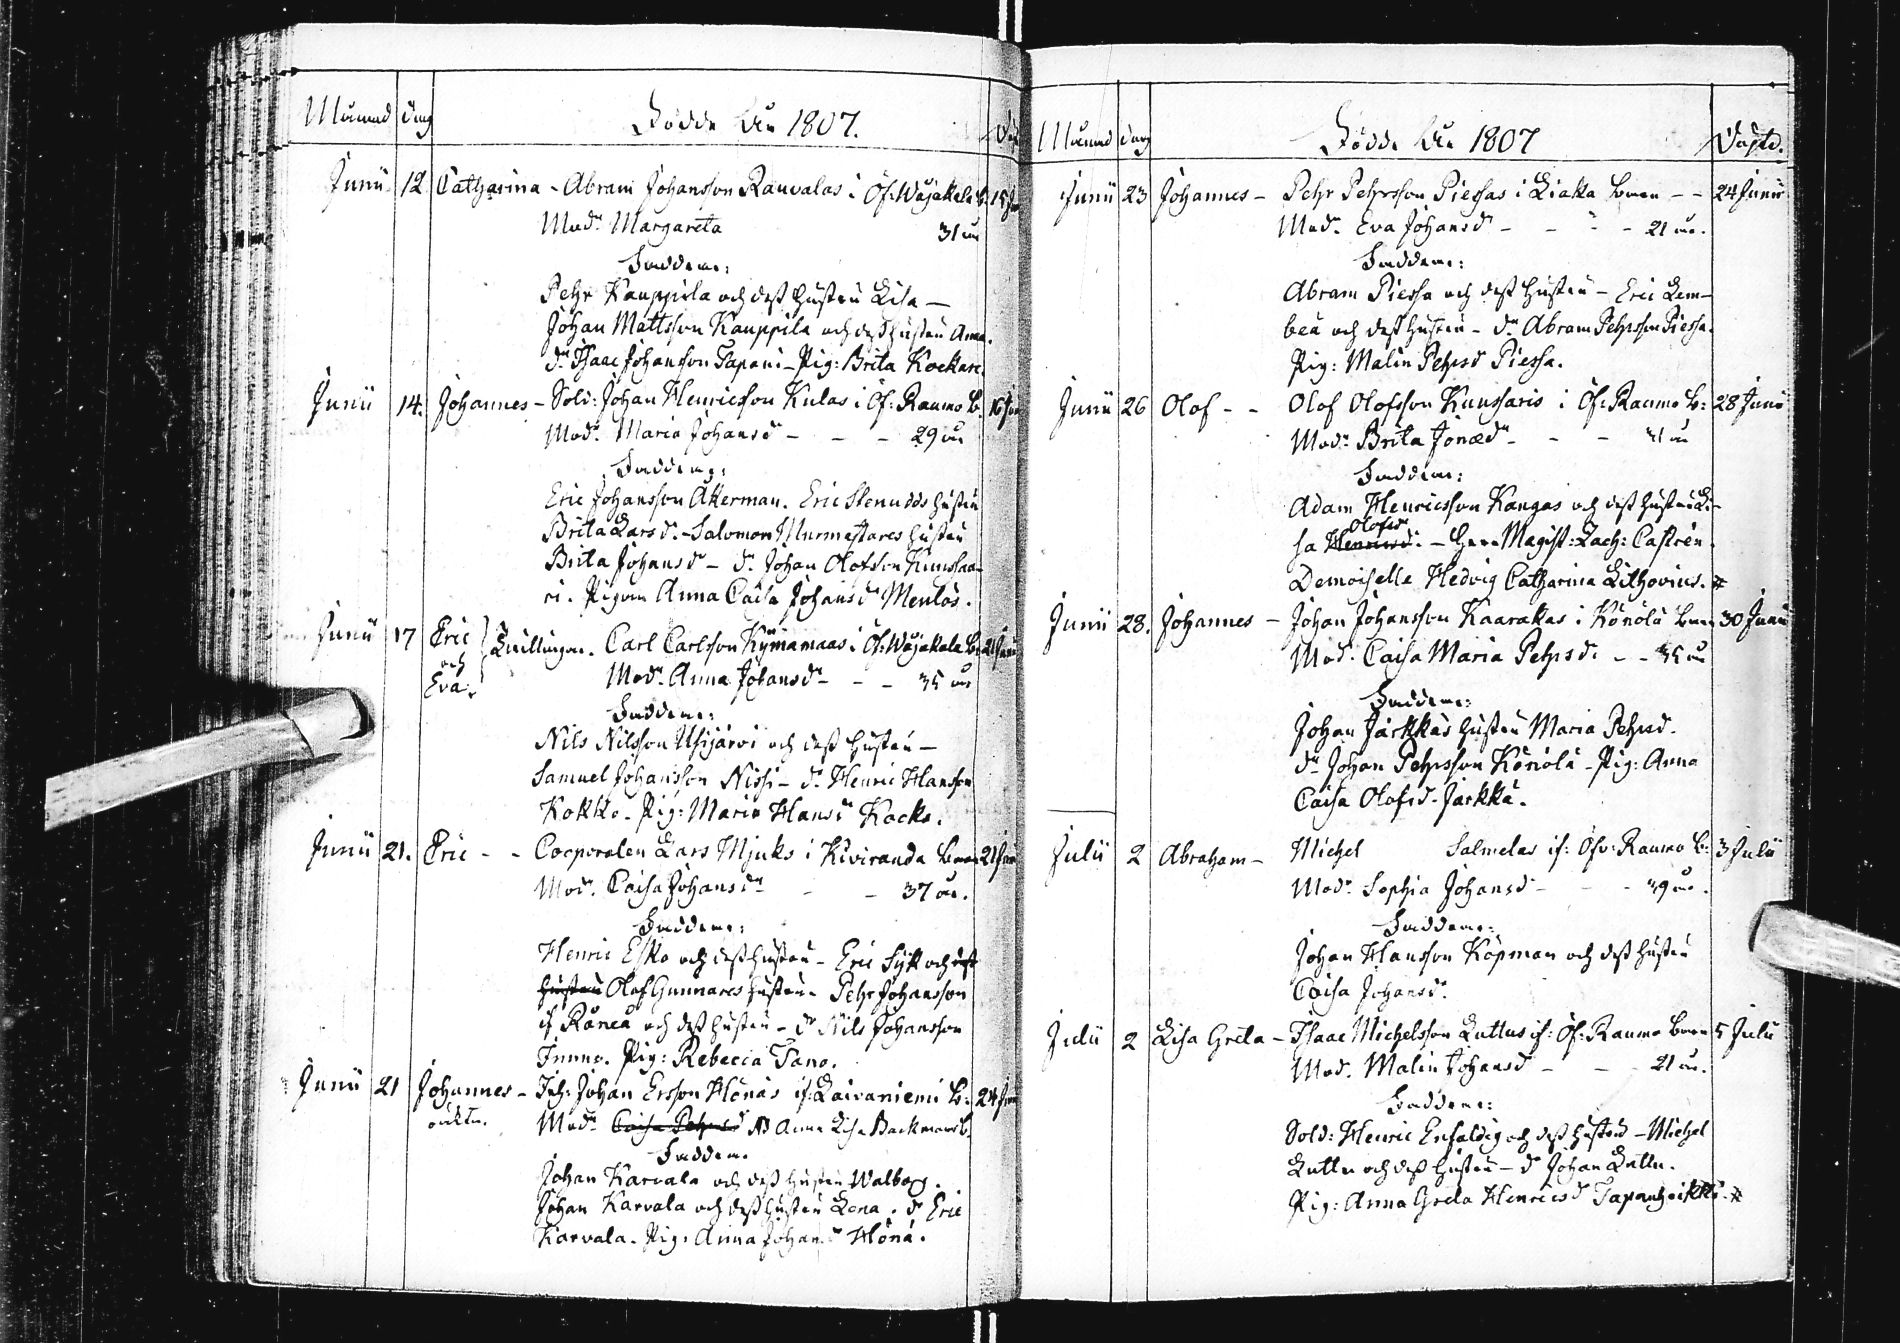 Månad dag Födde År 1807. Döp
Junii 12. Catharina - Abram Johansson Rauvalas i Öf: Wojakala b. 15 Jun
Modn Margareta 31 år
Faddrar:
Pehr Kauppila och dess hustru Lisa -
Johan Mattsson Kauppila och dess hustru Anna.
dn Isaac Johansson Tapani - Pig: Brita Kockare
Junii 14. Johannes - Sold: Johan Henricsson Kulas i Öf: Raumo b. 16 Jun
Modn Maria Johansdr - - - 29 år
Faddrar:
Eric Johansson Åkerman. Eric Stenudds hustru
Brita Larsd. - Salomon Murmestares hustru
Brita Johansd - dn Johan Olofsson Kunssaa-
ri. Pigan Anna Caisa Johansdr Mentas.
Junii 17 Eric och Eva. Tvillingar. Carl Carlsson Kymämaas i Öf: Wojakala b. 21 Junii
Modn Anna Johansdr - - - 35 år
Faddrar:
Nils Nilsson Ylijärvi och dess hustru -
Samuel Johansson Nissi - dn Henric Hansson
Kokko - Pig: Maria Hansdr Kocko.
Junii 21. Eric - - Corporalen Lars Mjuks i Kiviranda byen 21 Jun
Modn. Caisa Johansdr - - 37 år.
Faddrar:
Henric Esko och dess hustru - Eric Sÿk och dess
hustru Olof Gunnares hustru. Pehr Johansson
if Råneå och dess hustru - dn Nils Johansson
Junno. Pig: Rebecca Tano.
Junii 21 Johannes - Inh: Johan Ersson Hönäs if: Laivaniemi b: 24 Jun
oäkta. Modn Caisa Pehrsd Anna Lisa Backman b.
Faddrar
Johan Karvala och dess hustru Walborg.
Johan Karvala och dess hustru Lena. dn Eric
Karvala. Pig: Anna Johansdr Hönä.
Månad dag Födde År 1807 Döptd.
Junii 23 Johannes - Pehr Pehrsson Piessas i Liakka byen - - 24 Junii
Modn. Eva Johansd - - - - 21 år.
Faddrar:
Abram Piessa och dess hustru - Eric Lem-
beu och dess hustru - dn Abram Pehrsson Piessa.
Pig: Malin Pehrsd Piessa.
Junii 26 Olof - - Olof Olofsson Kunssaris i Öf: Raumo b: 28 Junii
Modn Brita Jonædr - - - 41 år
Faddrar:
Adam Henricsson Kangas och dess hustru Li-
Olofsd
sa Henricsd. - Herr Magist: Zach: Castrén.
Demoiselle Hedvig Catharina Lithovius. #
Junii 28. Johannes - Johan Johansson Kaarakas i Könölä byen 30 Junii
Modn. Caisa Maria Pehrsd: - - 35 år
Faddrar:
Johan Jarkkas hustru Maria Pehrsd.
dn Johan Pehrsson Könölä - Pig: Anna
Caisa Olofsd. Jarkka.
Julii 2 Abraham - Michel Salmelas if: Öfv: Raumo b: 3 Julii
Modn Sophia Johansd - - - 49 år.
Faddrar:
Johan Hansson Köpman och dess hustru
Caisa Johansd.
Julii 2 Lisa Greta - Isaac Michelsson Luttus if: Öf: Raumo byen 5 Julii
Modn. Malin Johansd - - - 21 år.
Faddrar:
Sold: Henric Enfaldig och dess hustru - Michel
Luttu och dess hustru - dn Johan Luttu.
Pig: Anna Greta Henricsd Tapanheikki. #